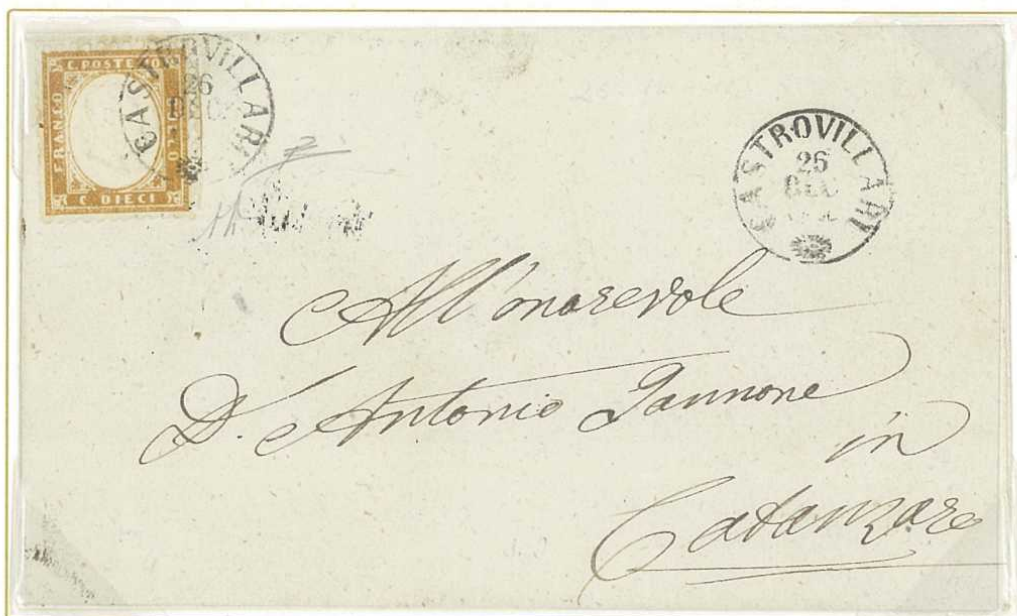 C. POSTE
FRANCO
BOLLO
C. DIECI
CASTROVILLARI
26
DEC
CASTROVILLARI
26
DEC
All'onorevole
D. Antonio Iannone
in
Catanzaro